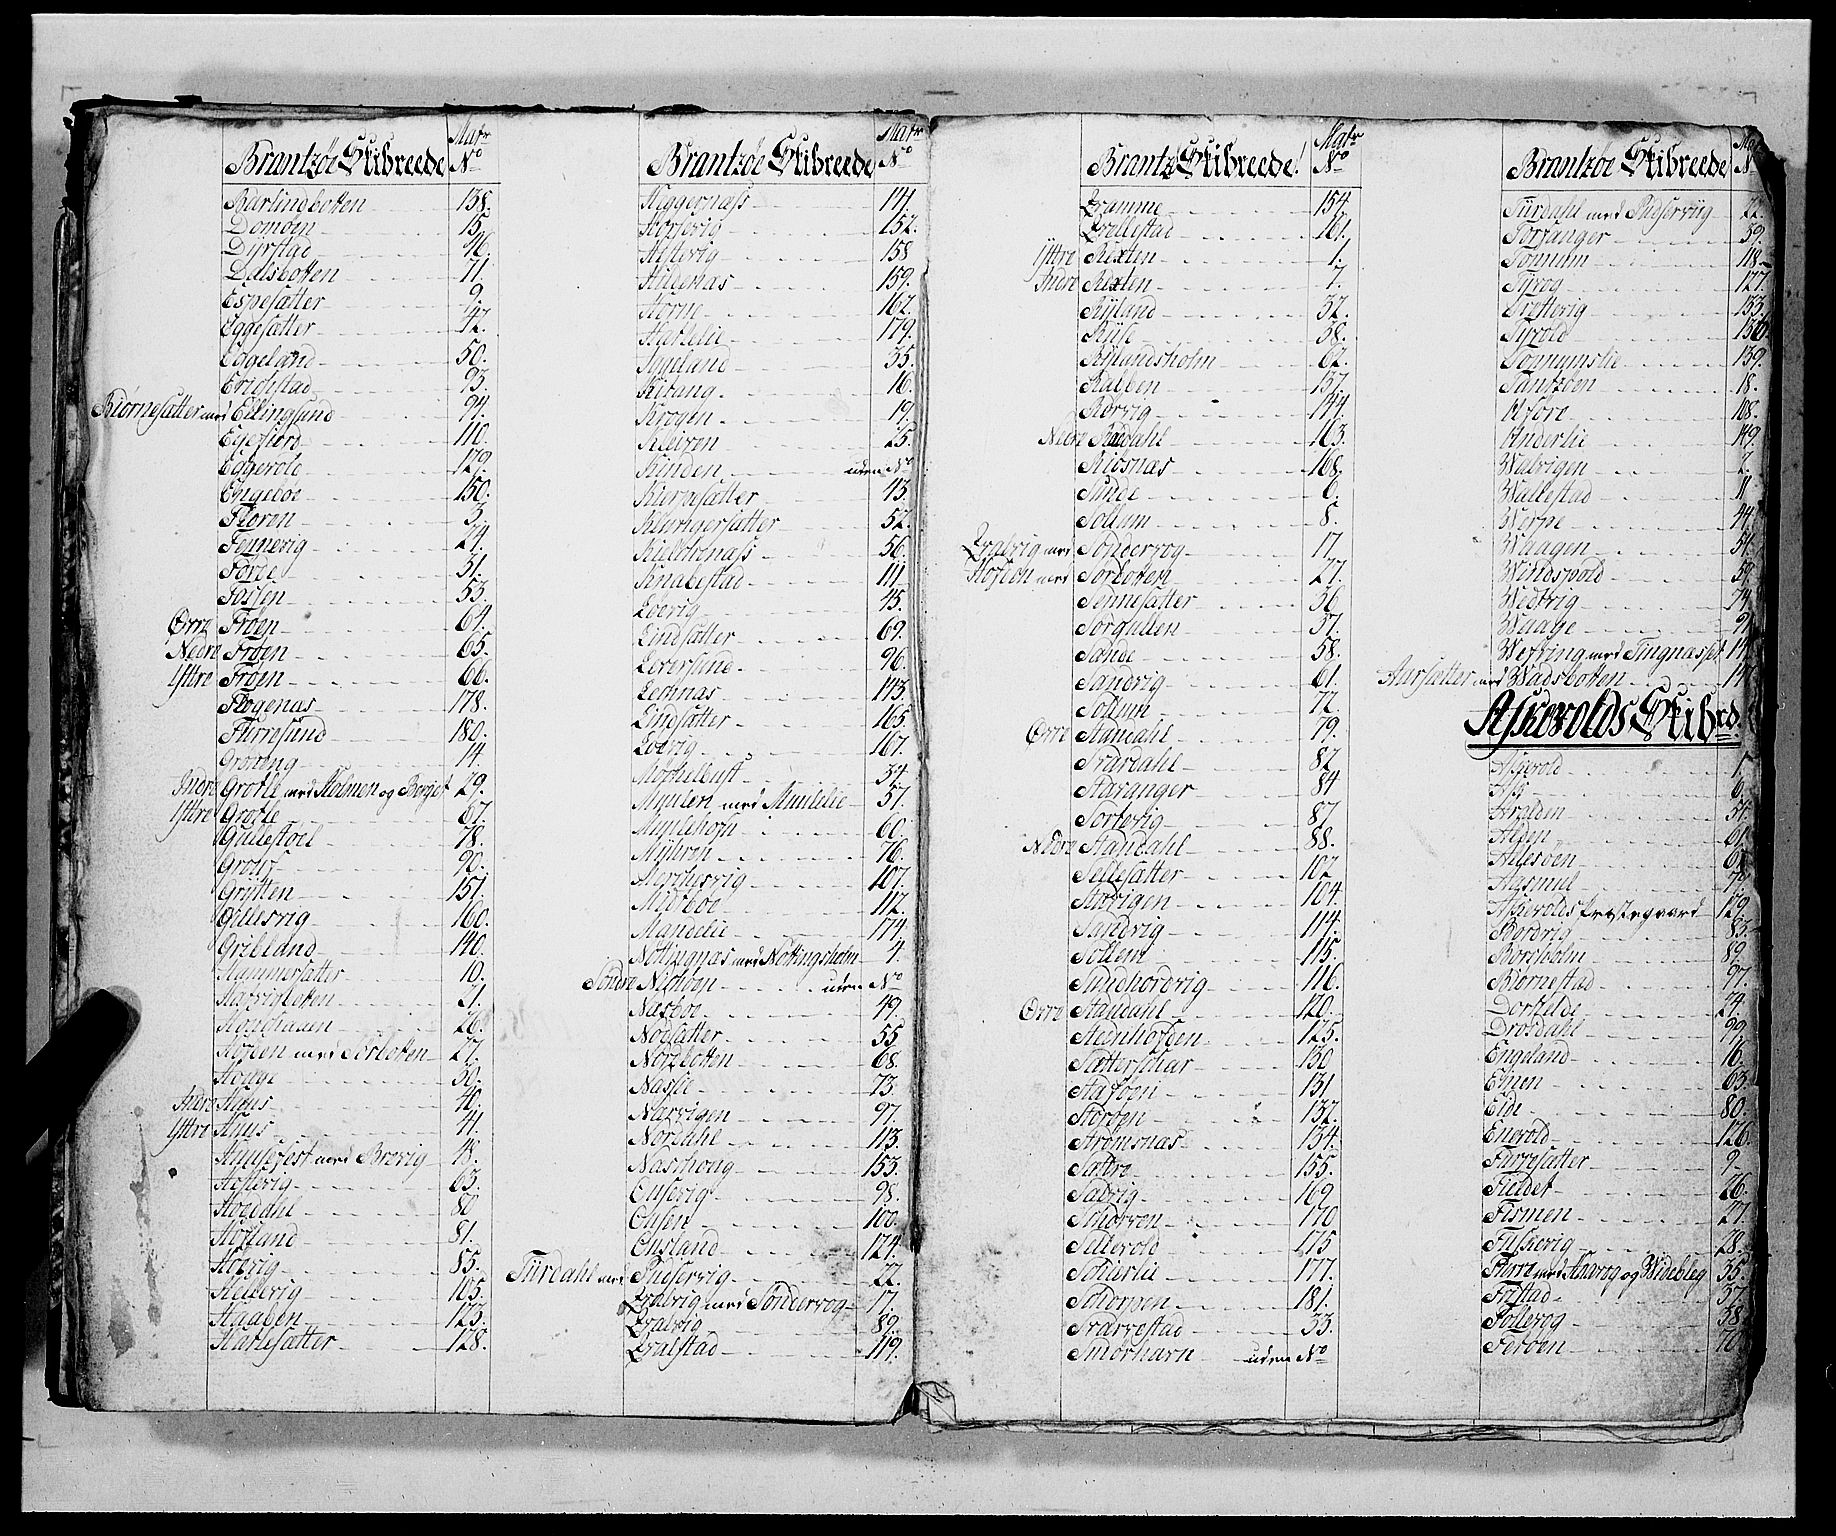 Brantzøe Skibreede Matr No
Barlindbotten 138.
Domøen 15.
Dyrstad 46.
Dalsbotten 71.
Espesætter 9.
Eggesætter 12.
Edgeland 50.
Erichstad 93.
Biørnesætter med Ellingsund 94.
Egefiord 110.
Eggevole 129.
Engebøe 150.
Florøn 3.
Fennevig 24.
Førde 51.
Fossen 53.
Øvre Frøen 64.
Nedre Frøen 65.
Yttre Frøen 66.
Flogenæs 178.
Furresund 180.
Grøning 14.
Indre Grotle med Holmen og Berget 29.
Yttre Grotle 67.
Gullestøel 78.
Grov 90.
Grytten 151.
Gulesvig 160.
Gribland 140.
Hammersætter 10.
Havrigbotten 21.
Hougl 30.
Hopen med Sørbotten 27.
Indre Huus 40.
Yttre Huus 41.
Husefest med Brevig 48.
Hestevig 63.
Hovdahl 80
Hofland 81.
Hovig 85.
Hellevig 105.
Haaben 123.
Harlesætter 128.
Brantzøe Skibreede Matr No
Heggernæss 144.
Horsevig 152.
Hestevig 158
Hildenæs 159.
Horne 162.
Harkelie 179.
Iggeland 35.
Kitang 16.
Krogen 19.
Kleiven 25.
Kinden uden No
Kiernesætter 43.
Klungersætter 52.
Kieldrenæss 56.
Knabestad 111.
Loevig 45.
Lindsætter 69.
Leversund 96.
Lernæs 143.
Lindsætter 165.
Loevig 167.
Mochelbust 34.
Muulen med Muulelie 57.
Myklehofn 60.
Myhren 76.
Merchesvig 107.
Midtbøe 112.
Mandelie 174.
Nottingnæs med Nottingsholm 4.
Søndre Nichøen uden No
Næsbøe 49.
Nodsætter 55
Nordbotten 68.
Næsse 73.
Narvigen 97.
Nordahl 113.
Næschoug 153.
Husevig 98.
Ohsen 100.
Ensland 124.
Tiirdahl med Pudservig 22.
Qvalvig med Søndervog 17.
Qvalvig 89.
Qvalstad 119.
Brantz Skibreede! Matr No
Qvamme 154.
Qvellestad 161.
Yttre Rexten 1.
Indre Rexten 7.
Ryland 32.
Riise 38.
Rylandsholm 62.
Rabben 137.
Rørvig 144.
Nedre Rædahl 163.
Riosnæs 168.
Sunde 6.
Sollum 8.
Qvalvig med Søndervog 17.
Hopen med Sørbotten 27.
Sennesætter 36
Sørgullen 37.
Sande 58.
Sandvig 61.
Sollum 72.
Øvre Standahl 79.
Svardahl 82
Stavanger 84
Sortevig 87
Nedre Standahl 88.
Sellesætter 102
Storvigen 104.
Sandvig 114.
Sollem 115.
Sundhordvig 116.
Øvre Standahl 120.
Steinhofden 125.
Sætterschar 130
Staføen 131.
Storøen 132.
Strømsnæs 134.
Sættre 155.
Sadvig 169
Schorven 170
Sellevold 175
Solherlie 177.
Schorpen 181.
Svarvestad 33.
Smørhavn uden No
Brantzøe Skibreede
Tiirdahl med Pudserviig 22.
Torsanger 39.
Tonnum 118.
Tyvog 127.
Trettevig 133.
Tyvold 136.
Tonnumslie 139.
Tantzøen 18.
Ufsøre 108.
Underlie 149.
Walvigen 2.
Wallestad 11
Werpe 44.
Waagen 54.
Windspold 59.
Wedvig 74.
Waage 91.
Werking med Tingnæsset
Aarsætter med Wadsbotten
Askevolds Skibrd.
Askevold 1.
Ask 6.
Aralden 54.
Alden 61.
Atlesøen
Aasmul
Askevolds Præstegaard 129.
Bordvig 83.
Borsholm 89.
Biørnestad 97.
Dorskelde 24.
Drøsdahl 99.
Engeland 16.
Ehien 63.
Eide 80.
Enevold 126.
Furresætter 9.
Fieldet 26.
Fismen 27.
Fiskevig 28.
Flurre med Haavog og Widebleg 35.
Fristad 37.
Follevog 38.
Ferøen 70.